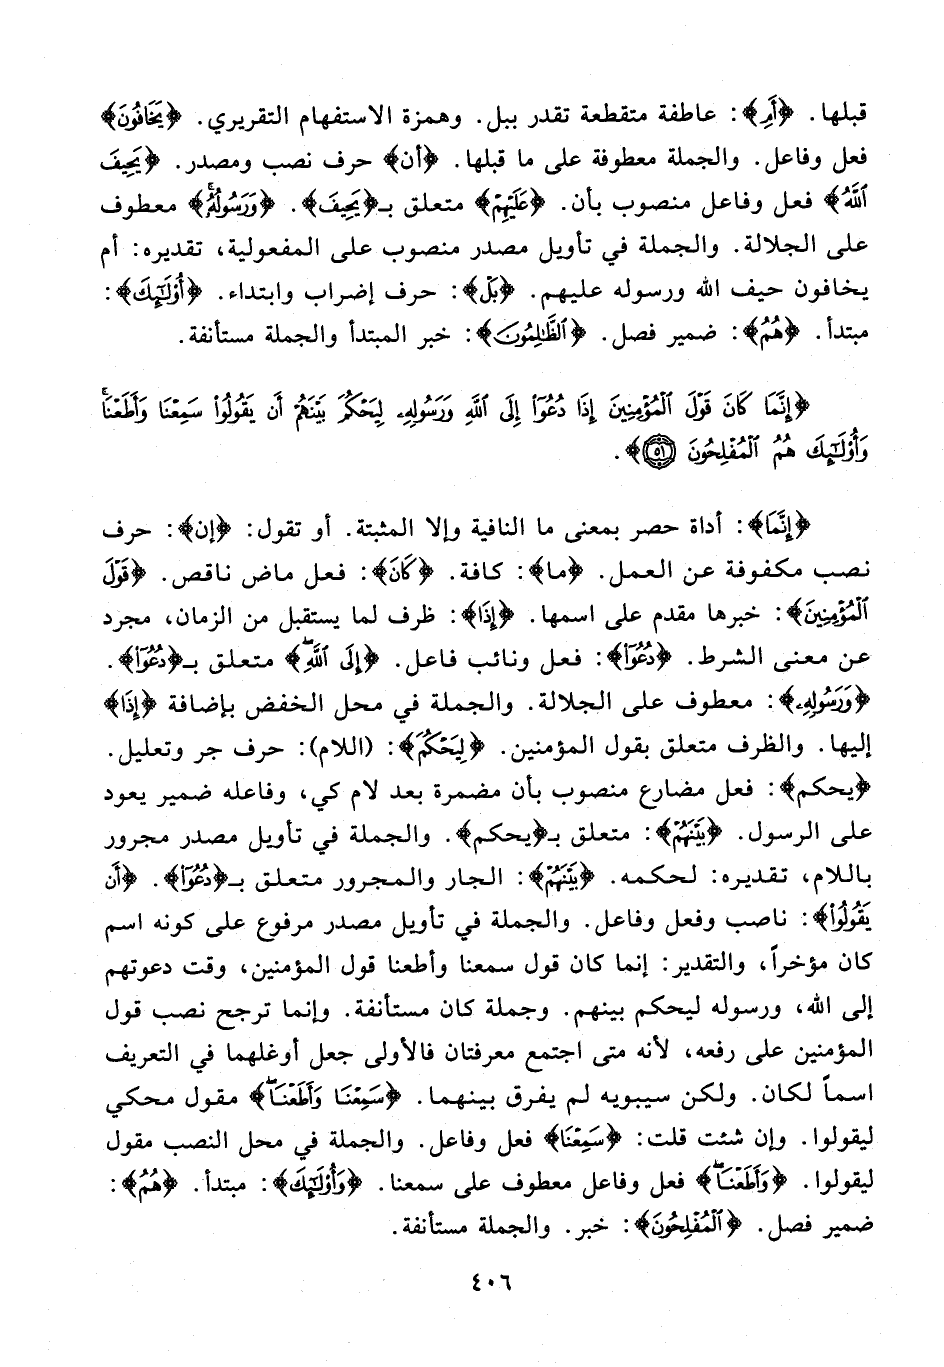 قبلها. ﴿أَمِ﴾: عاطفة متقطعة تقدر ببل. وهمزة الاستفهام التقريري. ﴿يَخَافُونَ﴾
فعل وفاعل. والجملة معطوفة على ما قبلها. ﴿أن﴾ حرف نصب ومصدر. ﴿يَحِيفَ
ٱللَّهُ﴾ فعل وفاعل منصوب بأن. ﴿عَلَيْهِمْ﴾ متعلق بـ﴿يَحِيفَ﴾. ﴿وَرَسُولُهُۥ﴾ معطوف
على الجلالة. والجملة في تأويل مصدر منصوب على المفعولية، تقديره: أم
يخافون حيف الله ورسوله عليهم. ﴿بَلْ﴾: حرف إضراب وابتداء. ﴿أُوْلَٰٓئِكَ﴾:
مبتدأ. ﴿هُمُ﴾: ضمير فصل. ﴿ٱلظَّٰلِمُونَ﴾: خبر المبتدأ والجملة مستأنفة.
﴿إِنَّمَا كَانَ قَوْلَ ٱلْمُؤْمِنِينَ إِذَا دُعُوٓاْ إِلَى ٱللَّهِ وَرَسُولِهِۦ لِيَحْكُمَ بَيْنَهُمْ أَن يَقُولُواْ سَمِعْنَا وَأَطَعْنَاۚ
وَأُوْلَٰٓئِكَ هُمُ ٱلْمُفْلِحُونَ ٥١﴾.
﴿إِنَّمَا﴾: أداة حصر بمعنى ما النافية وإلا المثبتة. أو تقول: ﴿إن﴾: حرف
نصب مكفوفة عن العمل. ﴿ما﴾: كافة. ﴿كَانَ﴾: فعل ماض ناقص. ﴿قَوْلَ
ٱلْمُؤْمِنِينَ﴾: خبرها مقدم على اسمها. ﴿إِذَا﴾: ظرف لما يستقبل من الزمان، مجرد
عن معنى الشرط. ﴿دُعُوٓاْ﴾: فعل ونائب فاعل. ﴿إِلَى ٱللَّهِۖ﴾ متعلق بـ﴿دُعُوٓاْ﴾.
﴿وَرَسُولِهِۦ﴾: معطوف على الجلالة. والجملة في محل الخفض بإضافة ﴿إِذَا﴾
إليها. والظرف متعلق بقول المؤمنين. ﴿لِيَحْكُمَ﴾: (اللام): حرف جر وتعليل.
﴿يحكم﴾: فعل مضارع منصوب بأن مضمرة بعد لام كي، وفاعله ضمير يعود
على الرسول. ﴿بَيْنَهُمْ﴾: متعلق بـ﴿يحكم﴾. والجملة في تأويل مصدر مجرور
باللام، تقديره: لحكمه. ﴿بَيْنَهُمْ﴾: الجار والمجرور متعلق بـ﴿دُعُوٓاْ﴾. ﴿أَن
يَقُولُواْ﴾: ناصب وفعل وفاعل. والجملة في تأويل مصدر مرفوع على كونه اسم
كان مؤخراً، والتقدير: إنما كان قول سمعنا وأطعنا قول المؤمنين، وقت دعوتهم
إلى الله، ورسوله ليحكم بينهم. وجملة كان مستأنفة. وإنما ترجح نصب قول
المؤمنين على رفعه، لأنه متى اجتمع معرفتان فالأولى جعل أوغلهما في التعريف
اسماً لكان. ولكن سيبويه لم يفرق بينهما. ﴿سَمِعْنَا وَأَطَعْنَاۖ﴾ مقول محكي
ليقولوا. وإن شئت قلت: ﴿سَمِعْنَا﴾ فعل وفاعل. والجملة في محل النصب مقول
ليقولوا. ﴿وَأَطَعْنَاۖ﴾ فعل وفاعل معطوف على سمعنا. ﴿وَأُوْلَٰٓئِكَ﴾: مبتدأ. ﴿هُمُ﴾:
ضمير فصل. ﴿ٱلْمُفْلِحُونَ﴾: خبر. والجملة مستأنفة.
٤٠٦